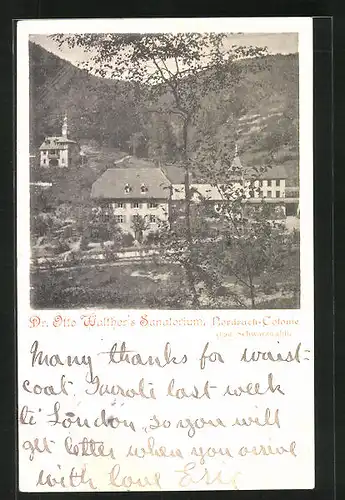 Dr. Otto Walther's Sanatorium, Nordrach-Colonie
Many thanks for waist-
coat. I wrote last week
to London, so you will
get letter when you arrive
with love Eric